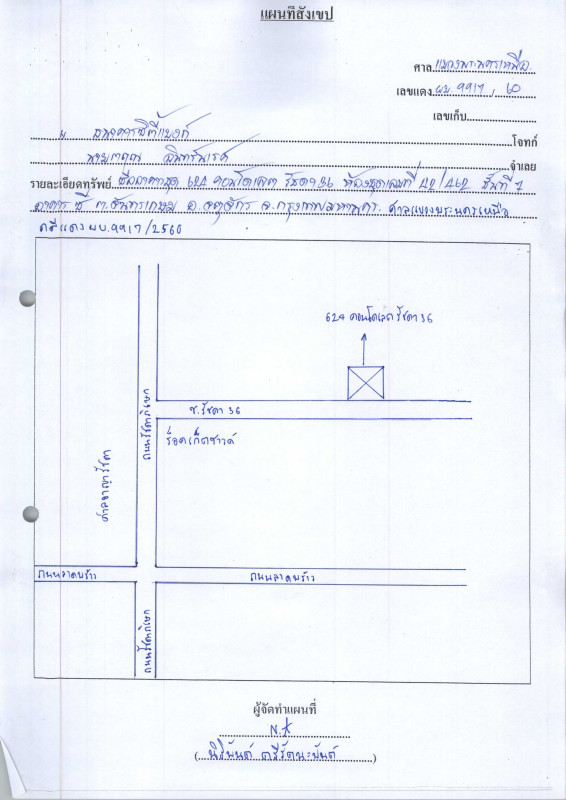 แผนที่สังเขป
ศาล แขวงพระนครเหนือ
เลขแดง ผบ.9917 / 60
เลขเก็บ
ธนาคารซิตี้แบงก์ โจทก์
จำเลย
รายละเอียดทรัพย์ ชื่ออาคารชุด 624 คอนโดเลต รัชดา 36 ห้องชุดเลขที่ 42/462 ชั้นที่ 7
อาคาร ซี ต.จันทรเกษม อ.จตุจักร จ.กรุงเทพมหานคร. ศาลแขวงพระนครเหนือ
คดีแดง ผบ.9917/2560
624 คอนโดเลต รัชดา 36
ถนนรัชดาภิเษก
ซ.รัชดา 36
ร็อคเก็ตซาวด์
ศาลอาญารัชดา
ถนนลาดพร้าว
ถนนลาดพร้าว
ถนนรัชดาภิเษก
ผู้จัดทำแผนที่
(นิรินันต์ ตรีรัตนะนันต์)